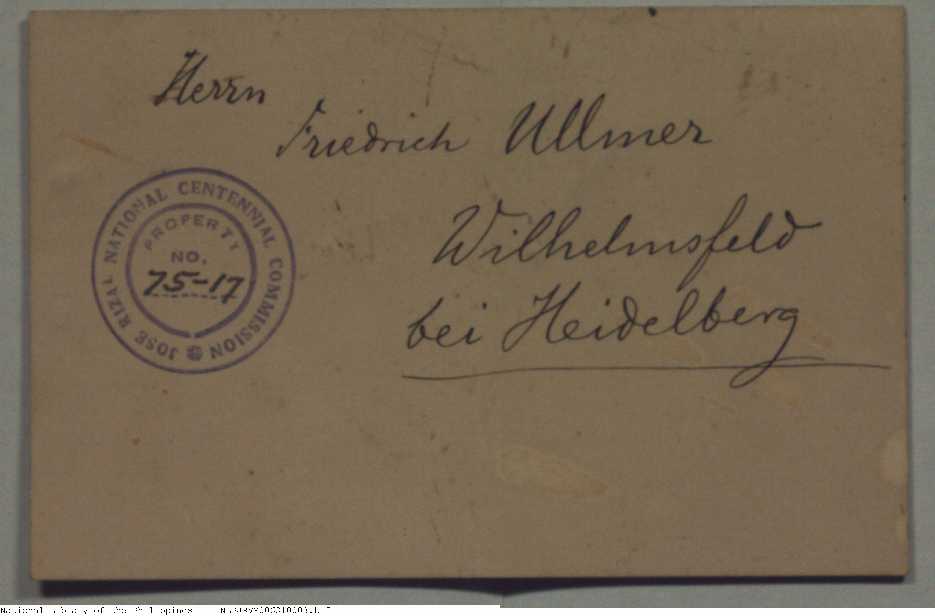 Herrn
Friedrich Ullmer
Wilhelmsfeld
bei Heidelberg
JOSE RIZAL NATIONAL CENTENNIAL COMMISSION
PROPERTY
NO.
75-17
National Library of the Philippines